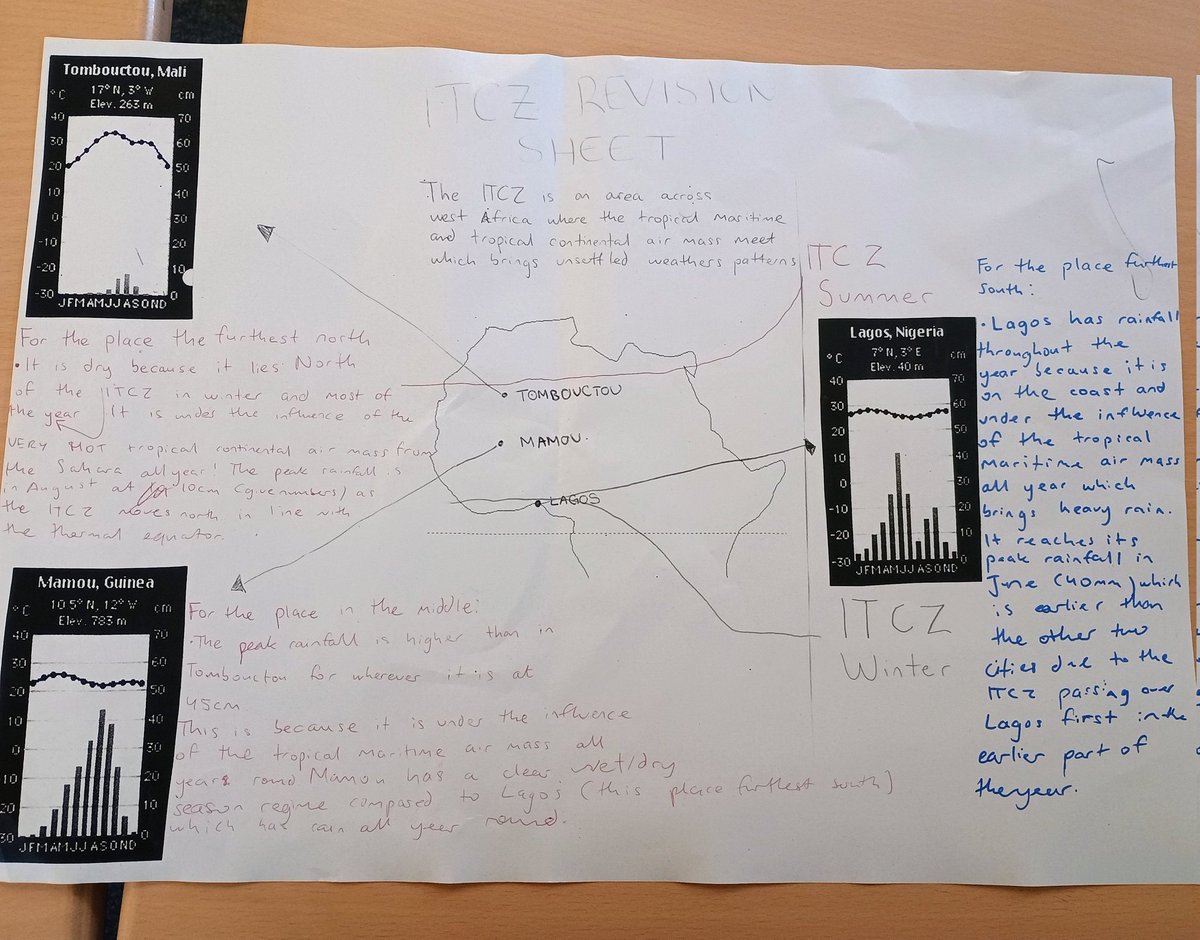 Tombouctou, Mali
°C 17° N, 3° W cm
Elev. 263 m
40 70
30 60
20 50
10 40
0 30
-10 20
-20 10
-30 0
JFMAMJJASOND
ITCZ REVISION
SHEET
The ITCZ is an area across
west Africa where the tropical maritime
and tropical continental air mass meet
which brings unsettled weathers patterns
ITCZ
Summer
For the place the furthest north
• It is dry because it lies North
of the ITCZ in winter and most of
the year It is under the influence of the
VERY HOT tropical continental air mass from
the Sahara all year! The peak rainfall is
in August at 10cm (give numbers) as
the ITCZ moves north in line with
the thermal equator.
TOMBOUCTOU
MAMOU.
LAGOS
Lagos, Nigeria
°C 7° N, 3° E cm
Elev. 40 m
40 70
30 60
20 50
10 40
0 30
-10 20
-20 10
-30 0
JFMAMJJASOND
ITCZ
Winter
For the place furthest
south:
• Lagos has rainfall
throughout the
year because it is
on the coast and
under the influence
of the tropical
maritime air mass
all year which
brings heavy rain.
It reaches its
peak rainfall in
June (40mm) which
is earlier than
the other two
cities due to the
ITCZ passing over
Lagos first in the
earlier part of
the year.
Mamou, Guinea
°C 10.5° N, 12° W cm
Elev. 783 m
40 70
30 60
20 50
10 40
0 30
10 20
20 10
30 0
JFMAMJJASOND
For the place in the middle:
• The peak rainfall is higher than in
Tombouctou for wherever it is at
45cm
This is because it is under the influence
of the tropical maritime air mass all
year round Mamou has a clear wet/dry
season regime composed to Lagos (this place furthest south)
which has rain all year round.